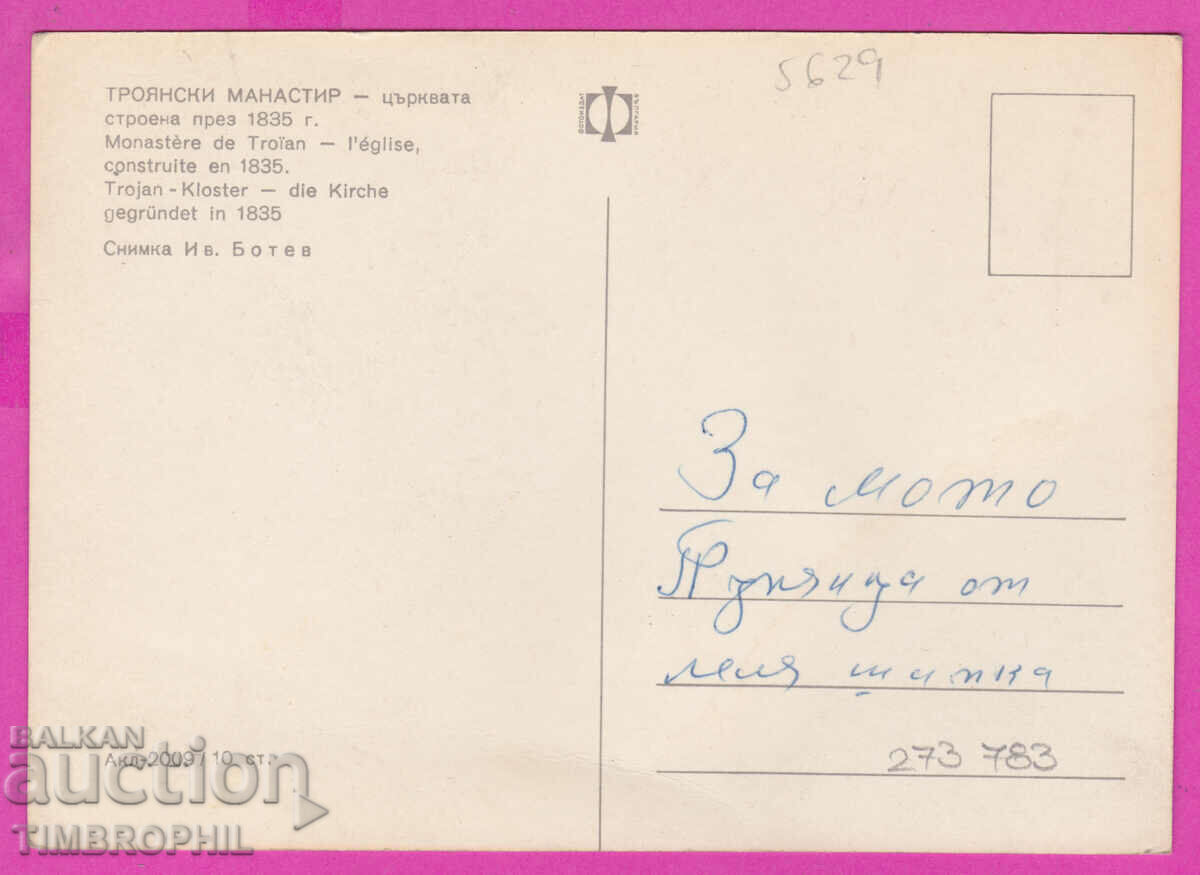 5629
ТРОЯНСКИ МАНАСТИР — църквата
строена през 1835 г.
Monastère de Troïan — l'église,
construite en 1835.
Trojan-Kloster — die Kirche
gegründet in 1835
Снимка Ив. Ботев
ФОТОИЗДАТ
БЪЛГАРИЯ
За мото
от
леля шипка
273 783
Акл-2009/10 ст.
BALKAN
auction
TIMBROPHIL